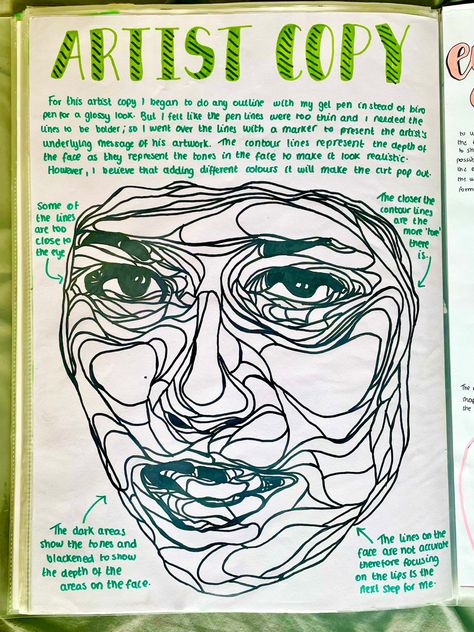 ARTIST COPY
For this artist copy I began to do any outline with my gel pen instead of biro
pen for a glossy look. But I felt like the pen lines were too thin and I needed the
lines to be bolder; so I went over the lines with a marker to present the artist's
underlying message of his artwork. The contour lines represent the depth of
the face as they represent the tones in the face to make it look realistic.
However, I believe that adding different colours it will make the art pop out.
Some of
the lines
are too
close to
the eye
The closer the
contour lines
are the
more 'tone'
there
is.
The dark areas
show the tones and
blackened to show
the depth of the
areas on the face.
The lines on the
face are not accurate
therefore focusing
on the lips is the
next step for me.